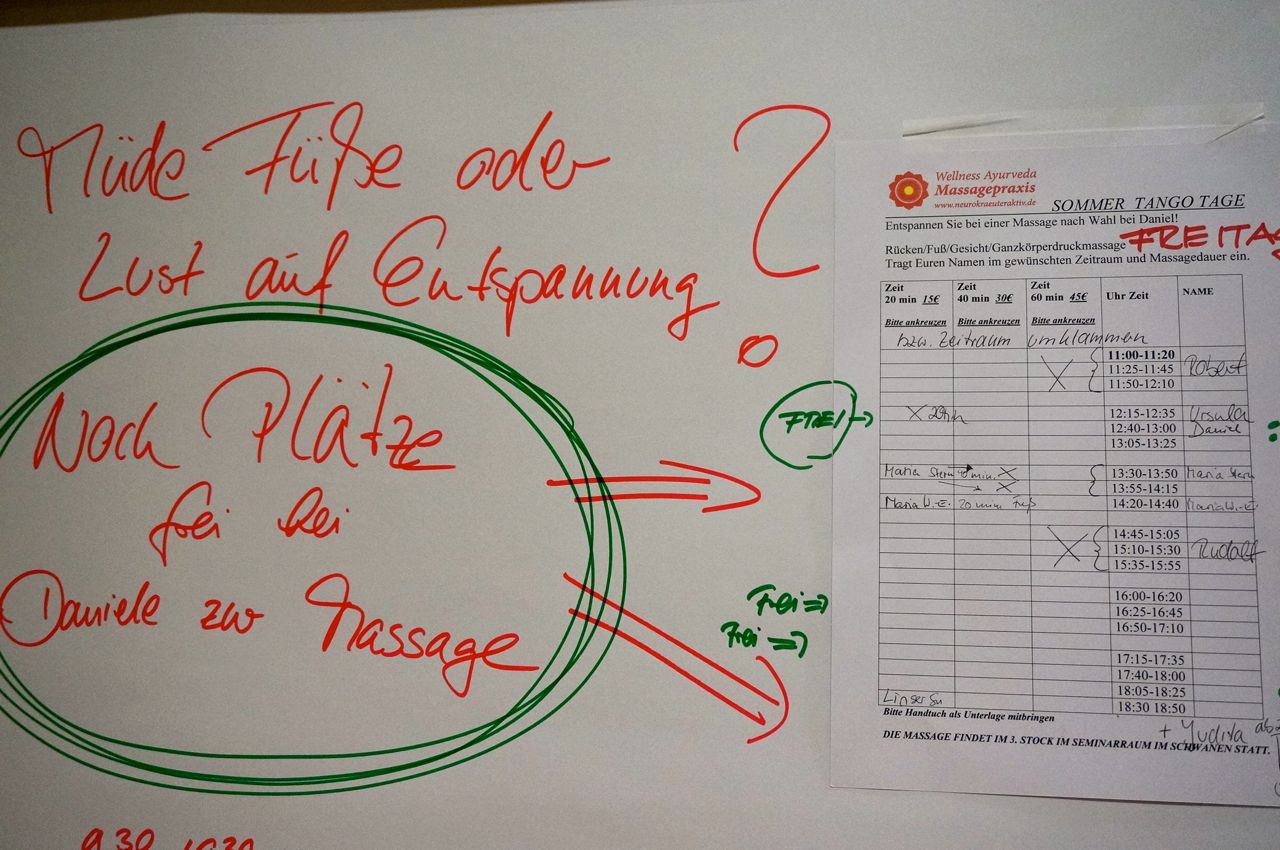 Müde Füße oder
Lust auf Entspannung
?
Noch Plätze
frei bei
Daniele zur Massage
FREI
Frei
Frei
9.30
Wellness Ayurveda
Massagepraxis
www.neurokraeuteraktiv.de
SOMMER TANGO TAGE
Entspannen Sie bei einer Massage nach Wahl bei Daniel!
Rücken/Fuß/Gesicht/Ganzkörperdruckmassage FREITAG
Tragt Euren Namen im gewünschten Zeitraum und Massagedauer ein.
Zeit 20 min 15€ Bitte ankreuzen
Zeit 40 min 30€ Bitte ankreuzen
Zeit 60 min 45€ Bitte ankreuzen
Uhr Zeit
NAME
bzw. Zeitraum umklammern
11:00-11:20
11:25-11:45 Robert
11:50-12:10
X 20min 12:15-12:35 Ursula
12:40-13:00 Daniel
13:05-13:25
Maria Stern 40 min. 13:30-13:50 Maria Stern
13:55-14:15
Maria W.-E. 20 min Fuß 14:20-14:40 Maria W.-E
14:45-15:05
15:10-15:30 Rudolf
15:35-15:55
16:00-16:20
16:25-16:45
16:50-17:10
17:15-17:35
17:40-18:00
18:05-18:25
18:30 18:50
Bitte Handtuch als Unterlage mitbringen
+ Yudita
DIE MASSAGE FINDET IM 3. STOCK IM SEMINARRAUM IM SCHWANEN STATT.